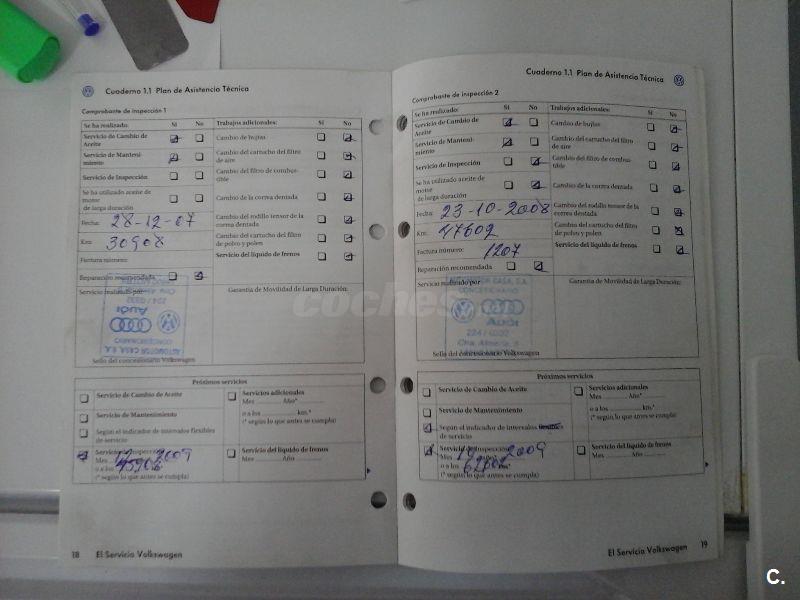 Cuaderno 1.1 Plan de Asistencia Técnica
Comprobante de inspección 1
Se ha realizado: Sí No Trabajos adicionales: Sí No
Servicio de Cambio de Aceite Cambio de bujías
Servicio de Manteni-
miento Cambio del cartucho del filtro
de aire
Servicio de Inspección Cambio del filtro de combus-
tible
Se ha utilizado aceite de
motor
de larga duración Cambio de la correa dentada
Fecha: 28-12-07 Cambio del rodillo tensor de la
correa dentada
Km: 30908 Cambio del cartucho del filtro
de polvo y polen
Factura número: Servicio del líquido de frenos
Reparación recomendada
Servicio realizado por: Garantía de Movilidad de Larga Duración:
AUTOMOTOR CASA, S.A.
CONCESIONARIO
Audi
224 / 0332
Sello del concesionario Volkswagen
Próximos servicios
Servicio de Cambio de Aceite Servicios adicionales
Mes Año*
Servicio de Mantenimiento o a los km.*
(* según lo que antes se cumpla)
Según el indicador de intervalos flexibles
de servicio
Servicio de Inspección Servicio del líquido de frenos
Mes 2009 Mes Año
o a los
(* según lo que antes se cumpla)
18 El Servicio Volkswagen
Cuaderno 1.1 Plan de Asistencia Técnica
Comprobante de inspección 2
Se ha realizado: Sí No Trabajos adicionales: Sí No
Servicio de Cambio de
Aceite Cambio de bujías
Servicio de Manteni-
miento Cambio del cartucho del filtro
de aire
Servicio de Inspección Cambio del filtro de combus-
tible
Se ha utilizado aceite de
motor
de larga duración Cambio de la correa dentada
Fecha: 23-10-2008 Cambio del rodillo tensor de la
correa dentada
Km: 47602 Cambio del cartucho del filtro
de polvo y polen
Factura número: 1207 Servicio del líquido de frenos
Reparación recomendada
Servicio realizado por: Garantía de Movilidad de Larga Duración:
CASA, S.A.
CONCESIONARIO
Audi
Ctra. Almería
Sello del concesionario Volkswagen
Próximos servicios
Servicio de Cambio de Aceite Servicios adicionales
Mes Año*
Servicio de Mantenimiento o a los km.*
(* según lo que antes se cumpla)
Según el indicador de intervalos flexibles
de servicio
Servicio de Inspección Servicio del líquido de frenos
Mes 2009 Mes Año
o a los
(* según lo que antes se cumpla)
El Servicio Volkswagen 19
coches
C.